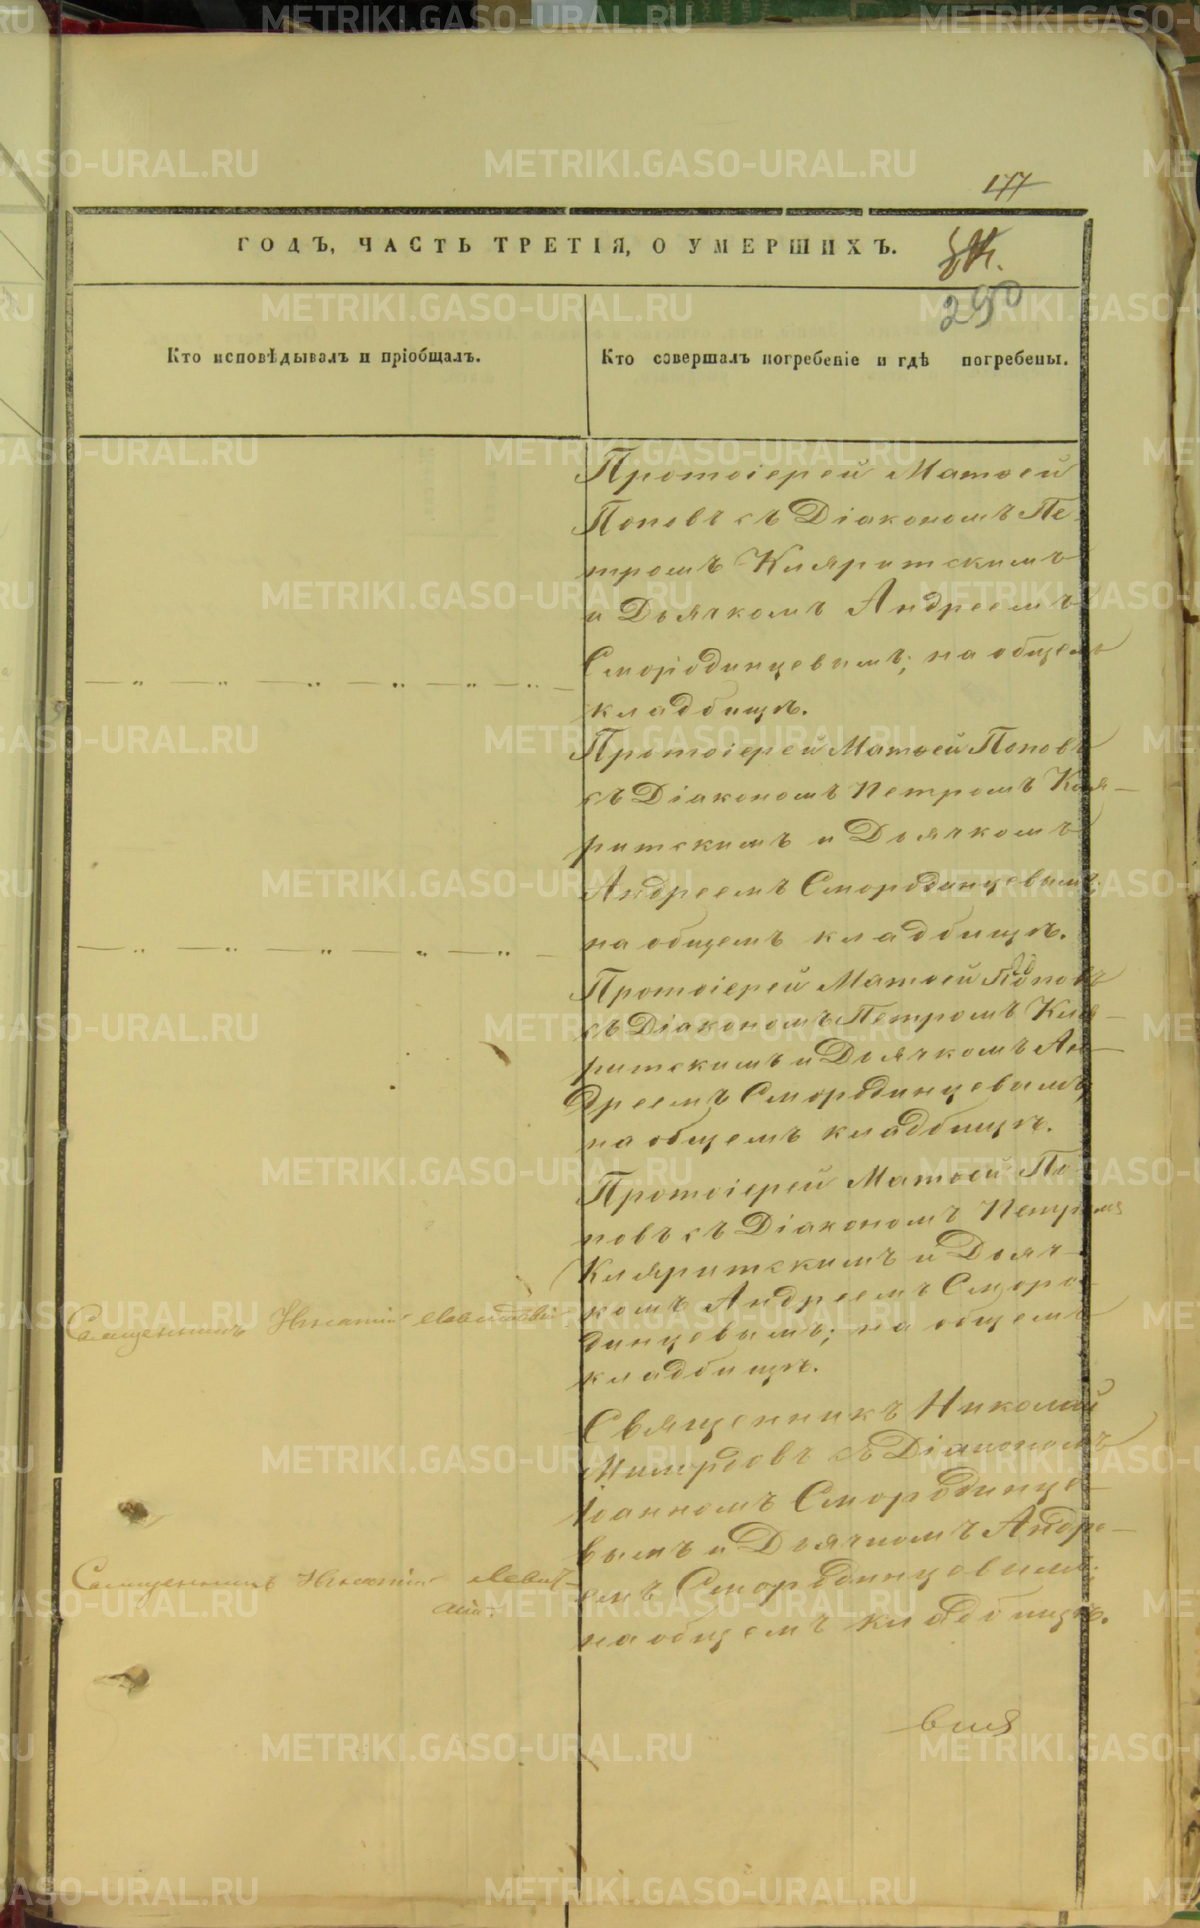 177
ГОДЪ, ЧАСТЬ ТРЕТІЯ, О УМЕРШИХЪ.
290
Кто исповѣдывалъ и пріобщалъ.
Кто совершалъ погребеніе и гдѣ погребены.
Протоіерей Матѳей
Поповъ съ Діакономъ Пе-
тромъ Кляритскимъ
и Дьячкомъ Андреемъ
Смородинцевымъ; на общемъ
кладбищѣ.
Протоіерей Матѳей Поповъ
съ Діакономъ Петромъ Кля-
ритскимъ и Дьячкомъ
Андреемъ Смородинцевымъ;
на общемъ кладбищѣ.
Протоіерей Матѳей Поповъ
съ Діакономъ Петромъ Кля-
ритскимъ и Дьячкомъ Ан-
дреемъ Смородинцевымъ;
на общемъ кладбищѣ.
Протоіерей Матѳей По-
повъ съ Діакономъ Петромъ
Кляритскимъ и Дьяч-
комъ Андреемъ Сморо-
динцевымъ; на общемъ
кладбищѣ.
Священникъ
Священникъ Николай
съ Діакономъ
Іоанномъ Смородинце-
вымъ и Дьячкомъ Андре-
емъ Смородинцевымъ;
на общемъ кладбищѣ.
Священникъ
METRIKI.GASO-URAL.RU